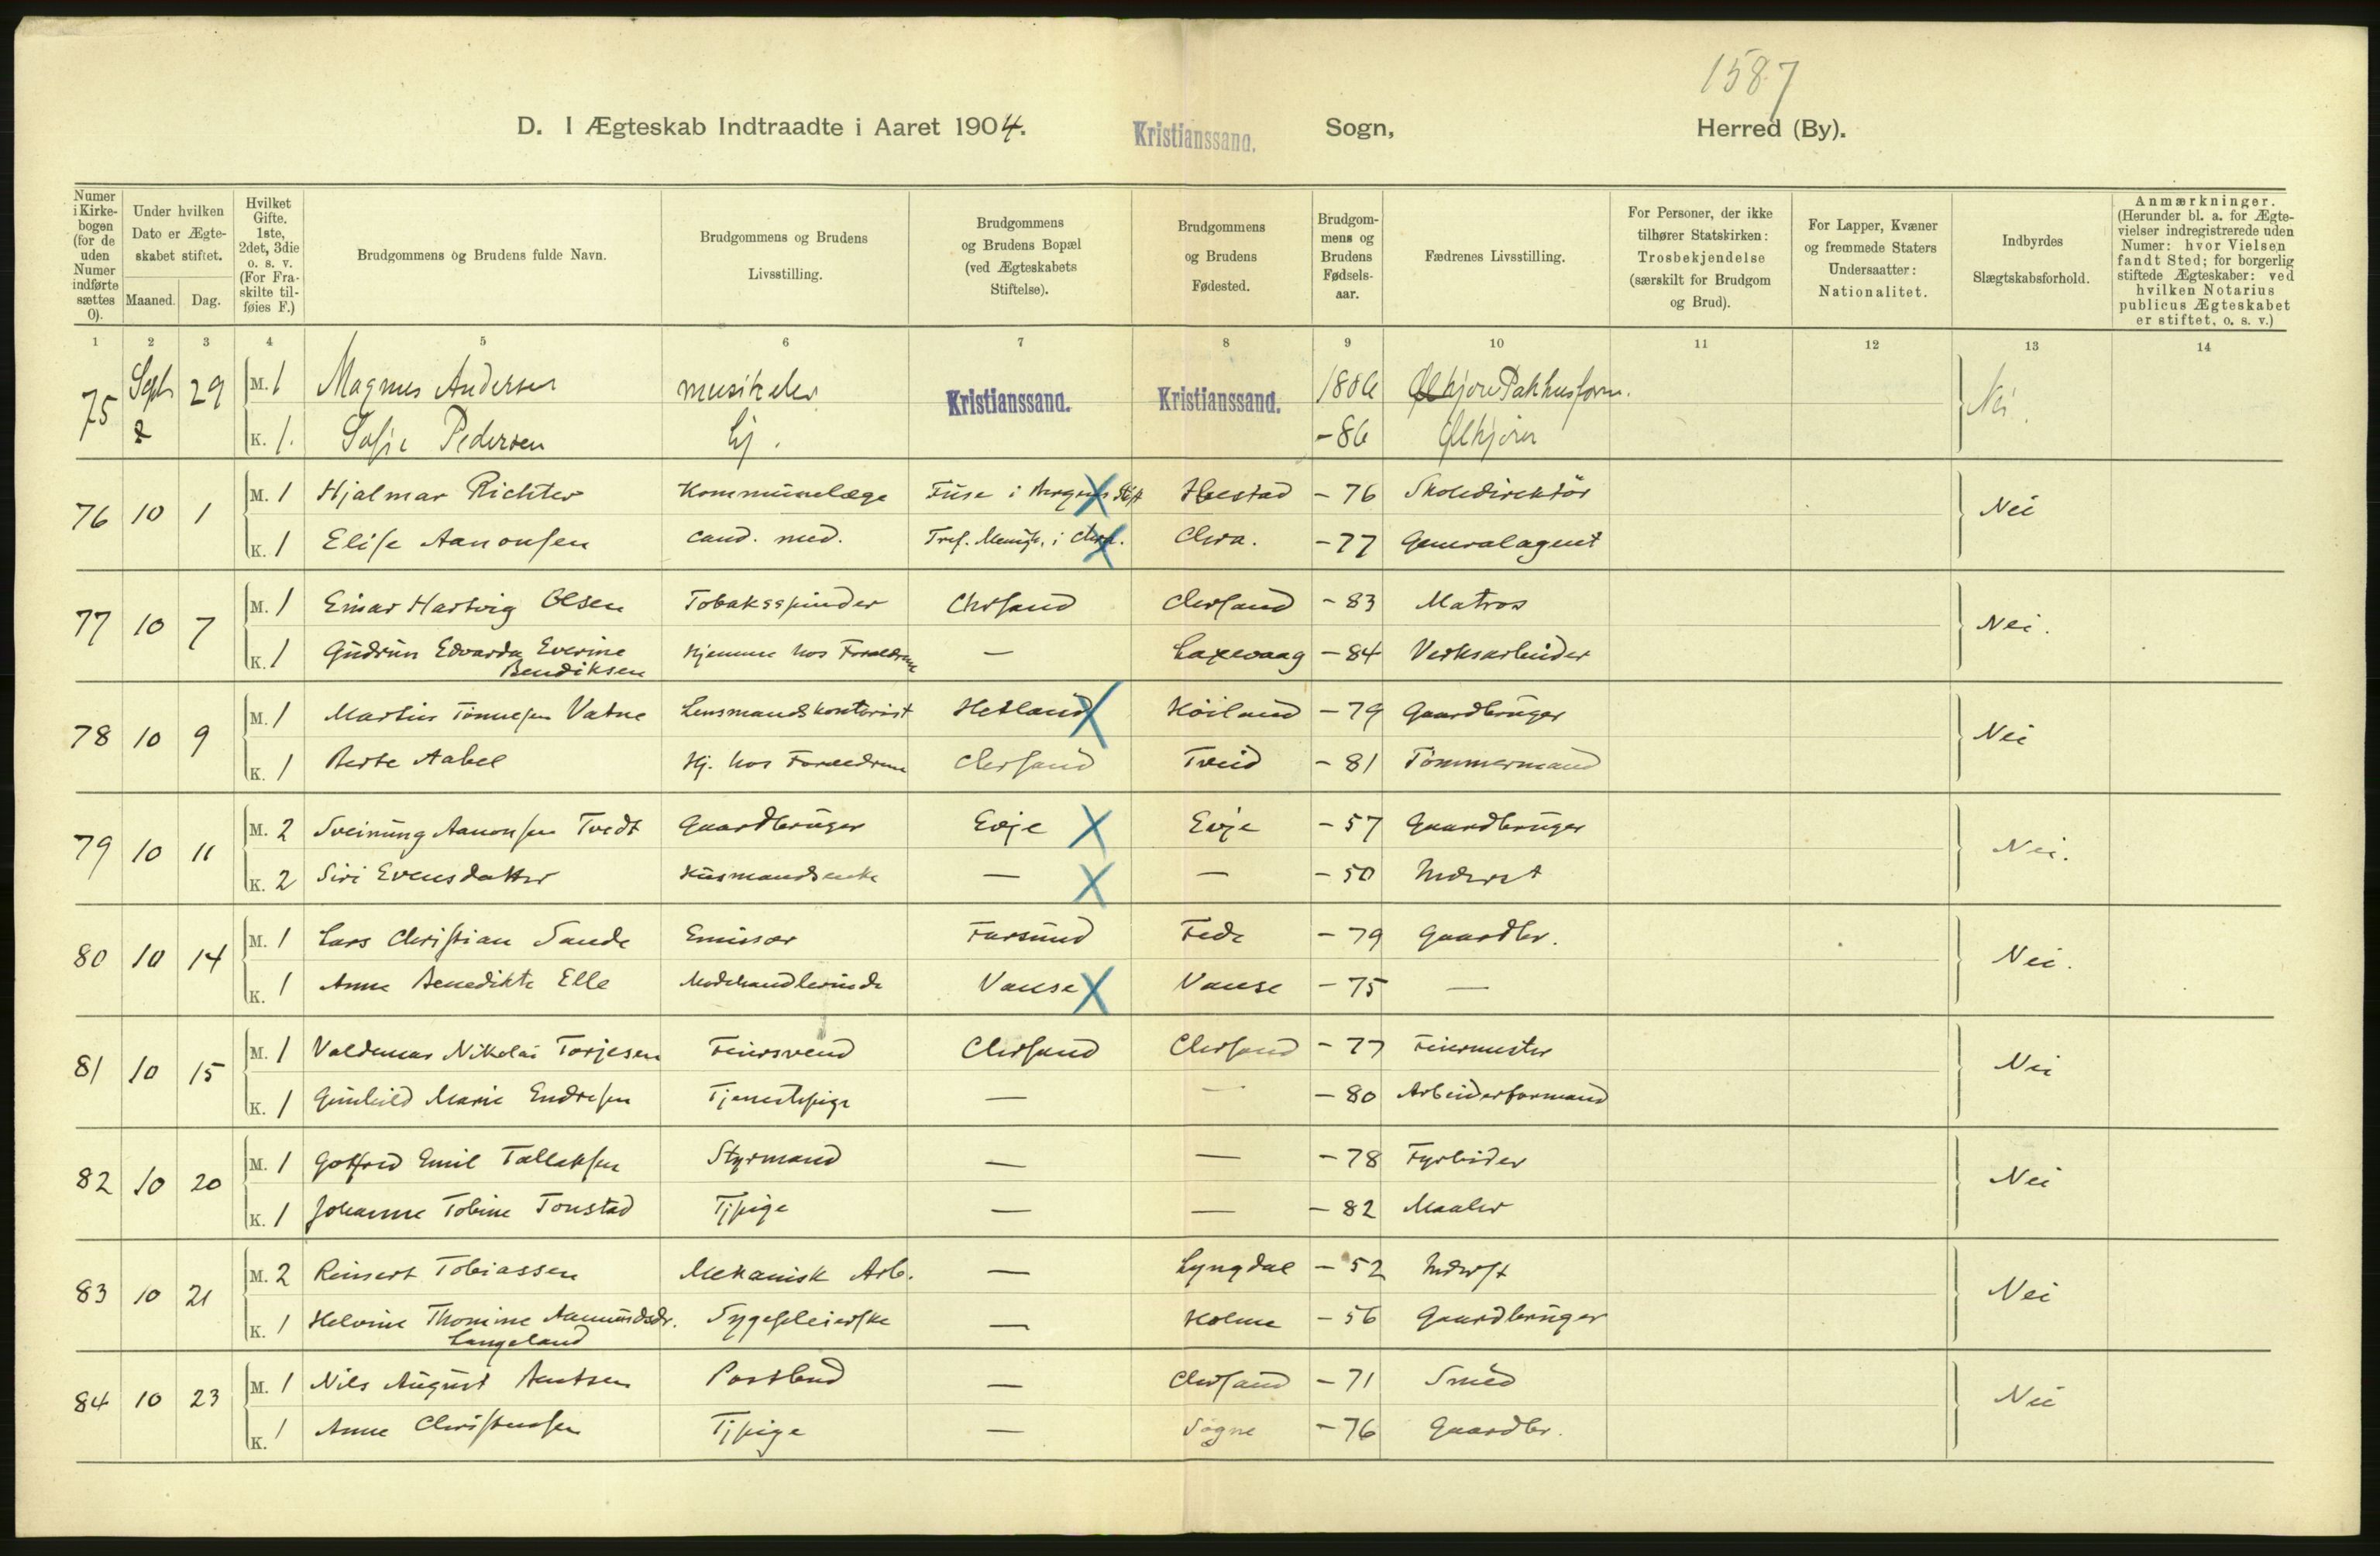 1587
D. I Ægteskab Indtraadte i Aaret 1904. Kristianssand. Sogn, Herred (By).
Numer i Kirkebogen (for de uden Numer indførte sættes 0).
Under hvilken Dato er Ægteskabet stiftet.
Maaned. Dag.
Hvilket Gifte. 1ste, 2det, 3die o. s. v. (For Fraskilte tilføies F.)
Brudgommens og Brudens fulde Navn.
Brudgommens og Brudens Livsstilling.
Brudgommens og Brudens Bopæl (ved Ægteskabets Stiftelse).
Brudgommens og Brudens Fødested.
Brudgommens og Brudens Fødselsaar.
Fædrenes Livsstilling.
For Personer, der ikke tilhører Statskirken: Trosbekjendelse (særskilt for Brudgom og Brud).
For Lapper, Kvæner og fremmede Staters Undersaatter: Nationalitet.
Indbyrdes Slægtskabsforhold.
Anmærkninger. (Herunder bl. a. for Ægtevielser indregistrerede uden Numer: hvor Vielsen fandt Sted; for borgerlig stiftede Ægteskaber: ved hvilken Notarius publicus Ægteskabet er stiftet, o. s. v.)
1 2 3 4 5 6 7 8 9 10 11 12 13 14
75 Sept 29 M. 1 Magnus Andersen Kristianssand. Kristianssand. Pakhusform. Nei.
K. 1. Sofie Pedersen Hj. - 86
76 10 1 M. 1 Hjalmar Richter Kommunelæge Fuse i Bergens Stift - 76 Skoledirektör Nei
K. 1 Elise Aanonsen cand. med. Tref. Menigh. i Chra. Chra. - 77 Generalagent
77 10 7 M. 1 Einar Hartvig Olsen Tobaksspinder Chrsand Chrsand - 83 Matros Nei.
K. 1 Gudrun Edvarda Everine Bendiksen Hjemme hos Forældrene — Laxevaag - 84 Verksarbeider
78 10 9 M. 1 Martin Tönnesen Vatne Lensmandskontorist Hetland Höiland - 79 Gaardbruger Nei
K. 1 Berte Aabel Hj. hos Forældrene Chrsand Tveid - 81 Tömmermand
79 10 11 M. 2 Sveinung Aanonsen Tvedt Gaardbruger Evje Evje - 57 Gaardbruger Nei.
K. 2 Siri Evensdatter Husmandsenke — — - 50 Inderst
80 10 14 M. 1 Lars Christian Sande Emissær Farsund Fede - 79 Gaardbr. Nei.
K. 1 Anne Benedikte Elle Modehandlerinde Vanse Vanse - 75 —
81 10 15 M. 1 Valdemar Nikolai Torjesen Feiersvend Chrsand Chrsand - 77 Feiermester Nei
K. 1 Gunhild Marie Endresen Tjenestepige — — - 80 Arbeiderformand
82 10 20 M. 1 Gotfred Emil Tallaksen Styrmand — — - 78 Fyrböder Nei
K. 1 Johanne Tobine Tonstad Tjpige — — - 82 Maaler
83 10 21 M. 2 Reinert Tobiassen Mekanisk Arb. — Lyngdal - 52 Inderst Nei
K. 1 Helvine Thomine Aamundsdr. Langeland Sygepleierske — Holme - 56 Gaardbruger
84 10 23 M. 1 Nils August Berntsen Postbud — Chrsand - 71 Smed Nei
K. 1 Anne Christensen Tjpige — Sögne - 76 Gaardbr.